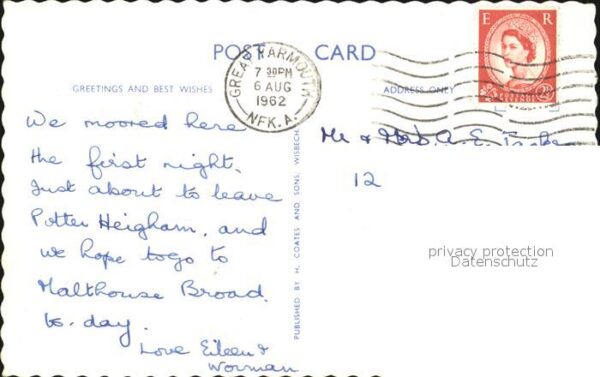 POST CARD
GREAT YARMOUTH
7 30PM
6 AUG
1962
NFK.A.
E R
2½
GREETINGS AND BEST WISHES
ADDRESS ONLY
We moored here
the first night.
Just about to leave
Potter Heigham, and
we hope to go to
Malthouse Broad.
to-day.
Love Eileen &
Norman
PUBLISHED BY H. COATES AND SONS, WISBECH.
Mr & Mrs A. E.
12
privacy protection
Datenschutz